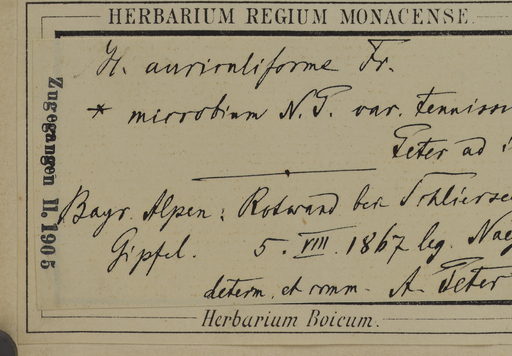 HERBARIUM REGIUM MONACENSE.
H. auriculiforme Fr.
* microbium N. P. var.
Peter ad
Zugegangen II. 1905
Bayr. Alpen: Rotwand bei Schliersee
Gipfel. 5. VIII. 1867 leg. Naeg
determ. et comm. A. Peter
Herbarium Boicum.